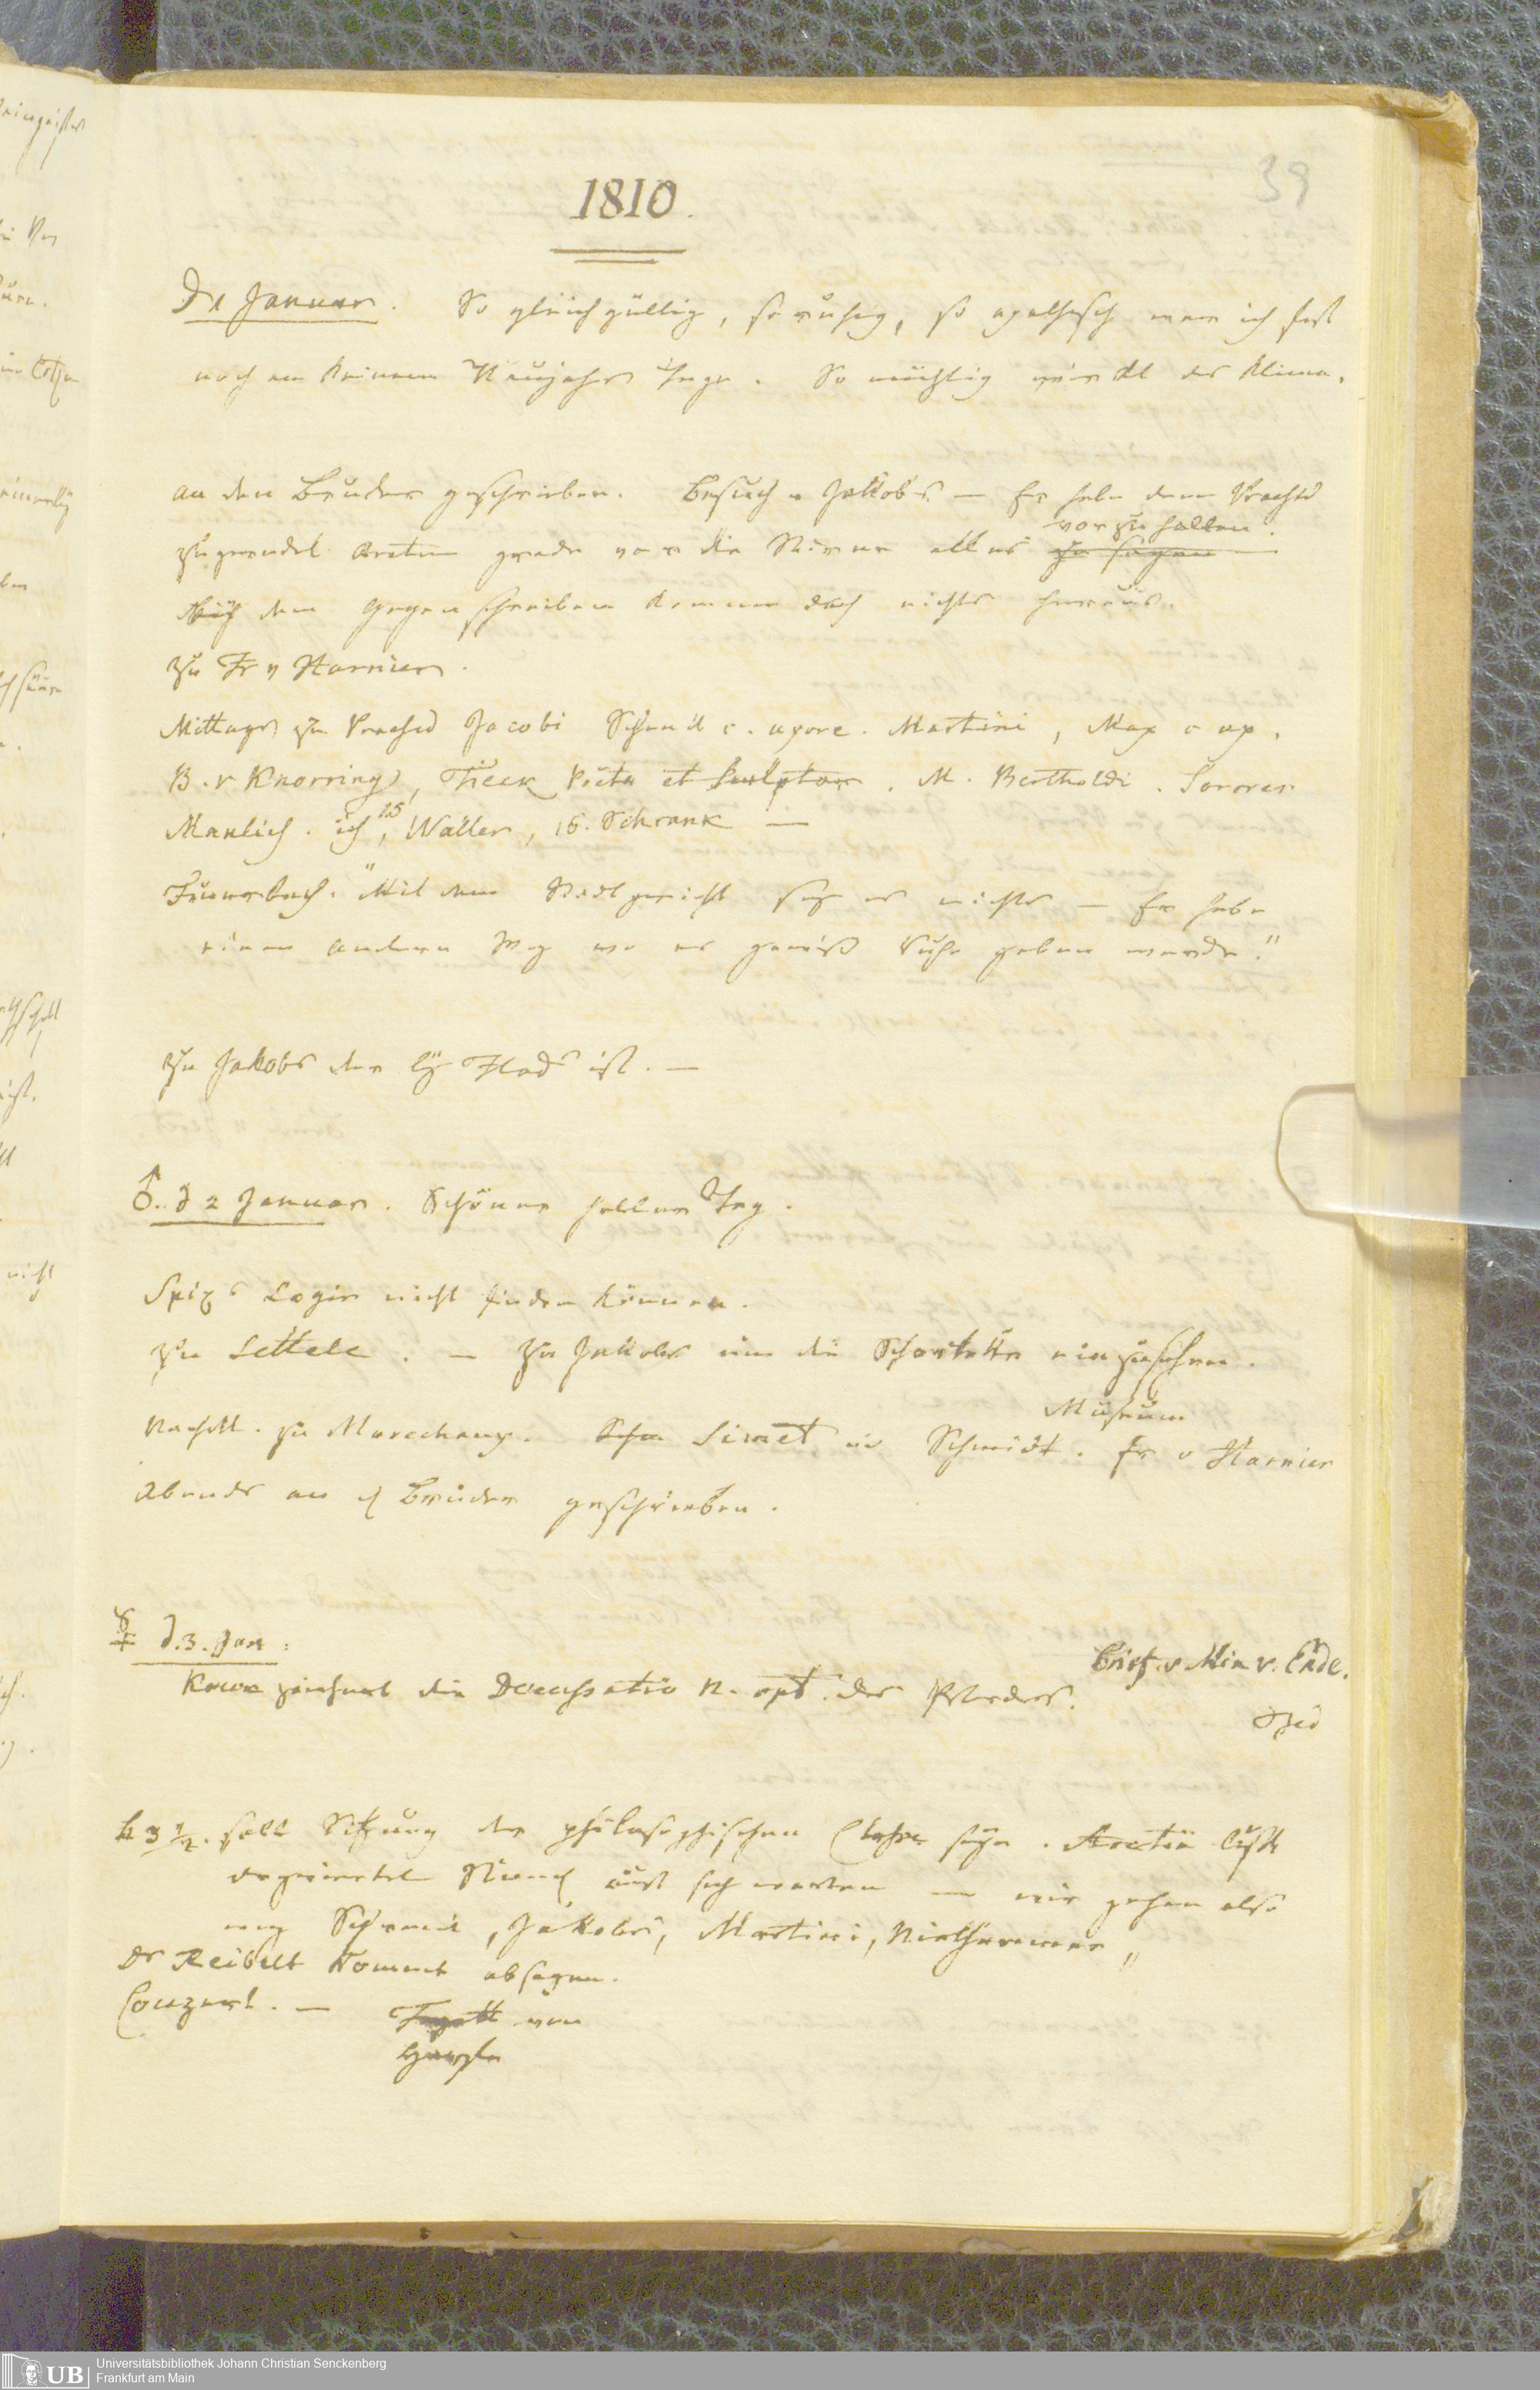 39
1810.
D 1 Januar. So gleichgültig, so ruhig, so apathisch war ich fast
noch an keinem Neujahrs Tage. So mächtig wirkt das Klima.
an den Bruder geschrieben. Besuch v Jakobs — Er habe dem Praesid
zugeredet Aretin grade vor die Stirne alles zu sagen
vorzuhalten.
dem Gegenschreiben komme doch nichts heraus.
zu Fr v Harnier.
Mittags zu Praesid Jacobi Schmid c. uxore. Martini, Max c ux.
B. v Knorring, Tieck Poeta et Sculptor. M. Bertholdi. Sorores
Manlich. ich, 15 Waller, 16. Schrank —
Feuerbach. "Mit dem Stadtgericht sey es nichts — Er habe
einen andern Weg wo er gewiß Ruhe geben werde."
zu Jakobs der bey ist. —
♂. d 2 Januar. Schöner heller Tag.
Spix's Logis nicht finden können.
zu Settele. — zu Jakobs um die einzusehen.
Nachm. zu Marechaux. Simet Schmidt. Museum Fr v Harnier
Abends an d Bruder geschrieben.
☿ d. 3. Jan:
Koeck zeichnet die Decussatio N. opt. des Pferdes.
Brief. v Min v. Ende.
h 3 1/2. soll Sitzung der philosophischen Classe seyn. Aretin läßt
dreyviertel Stund auf sich warten — wir gehen also
weg Schmid, Jakobs, Martini, Niethammer,
Dr Reibelt kommt absagen.
Conzert. — Fagott von